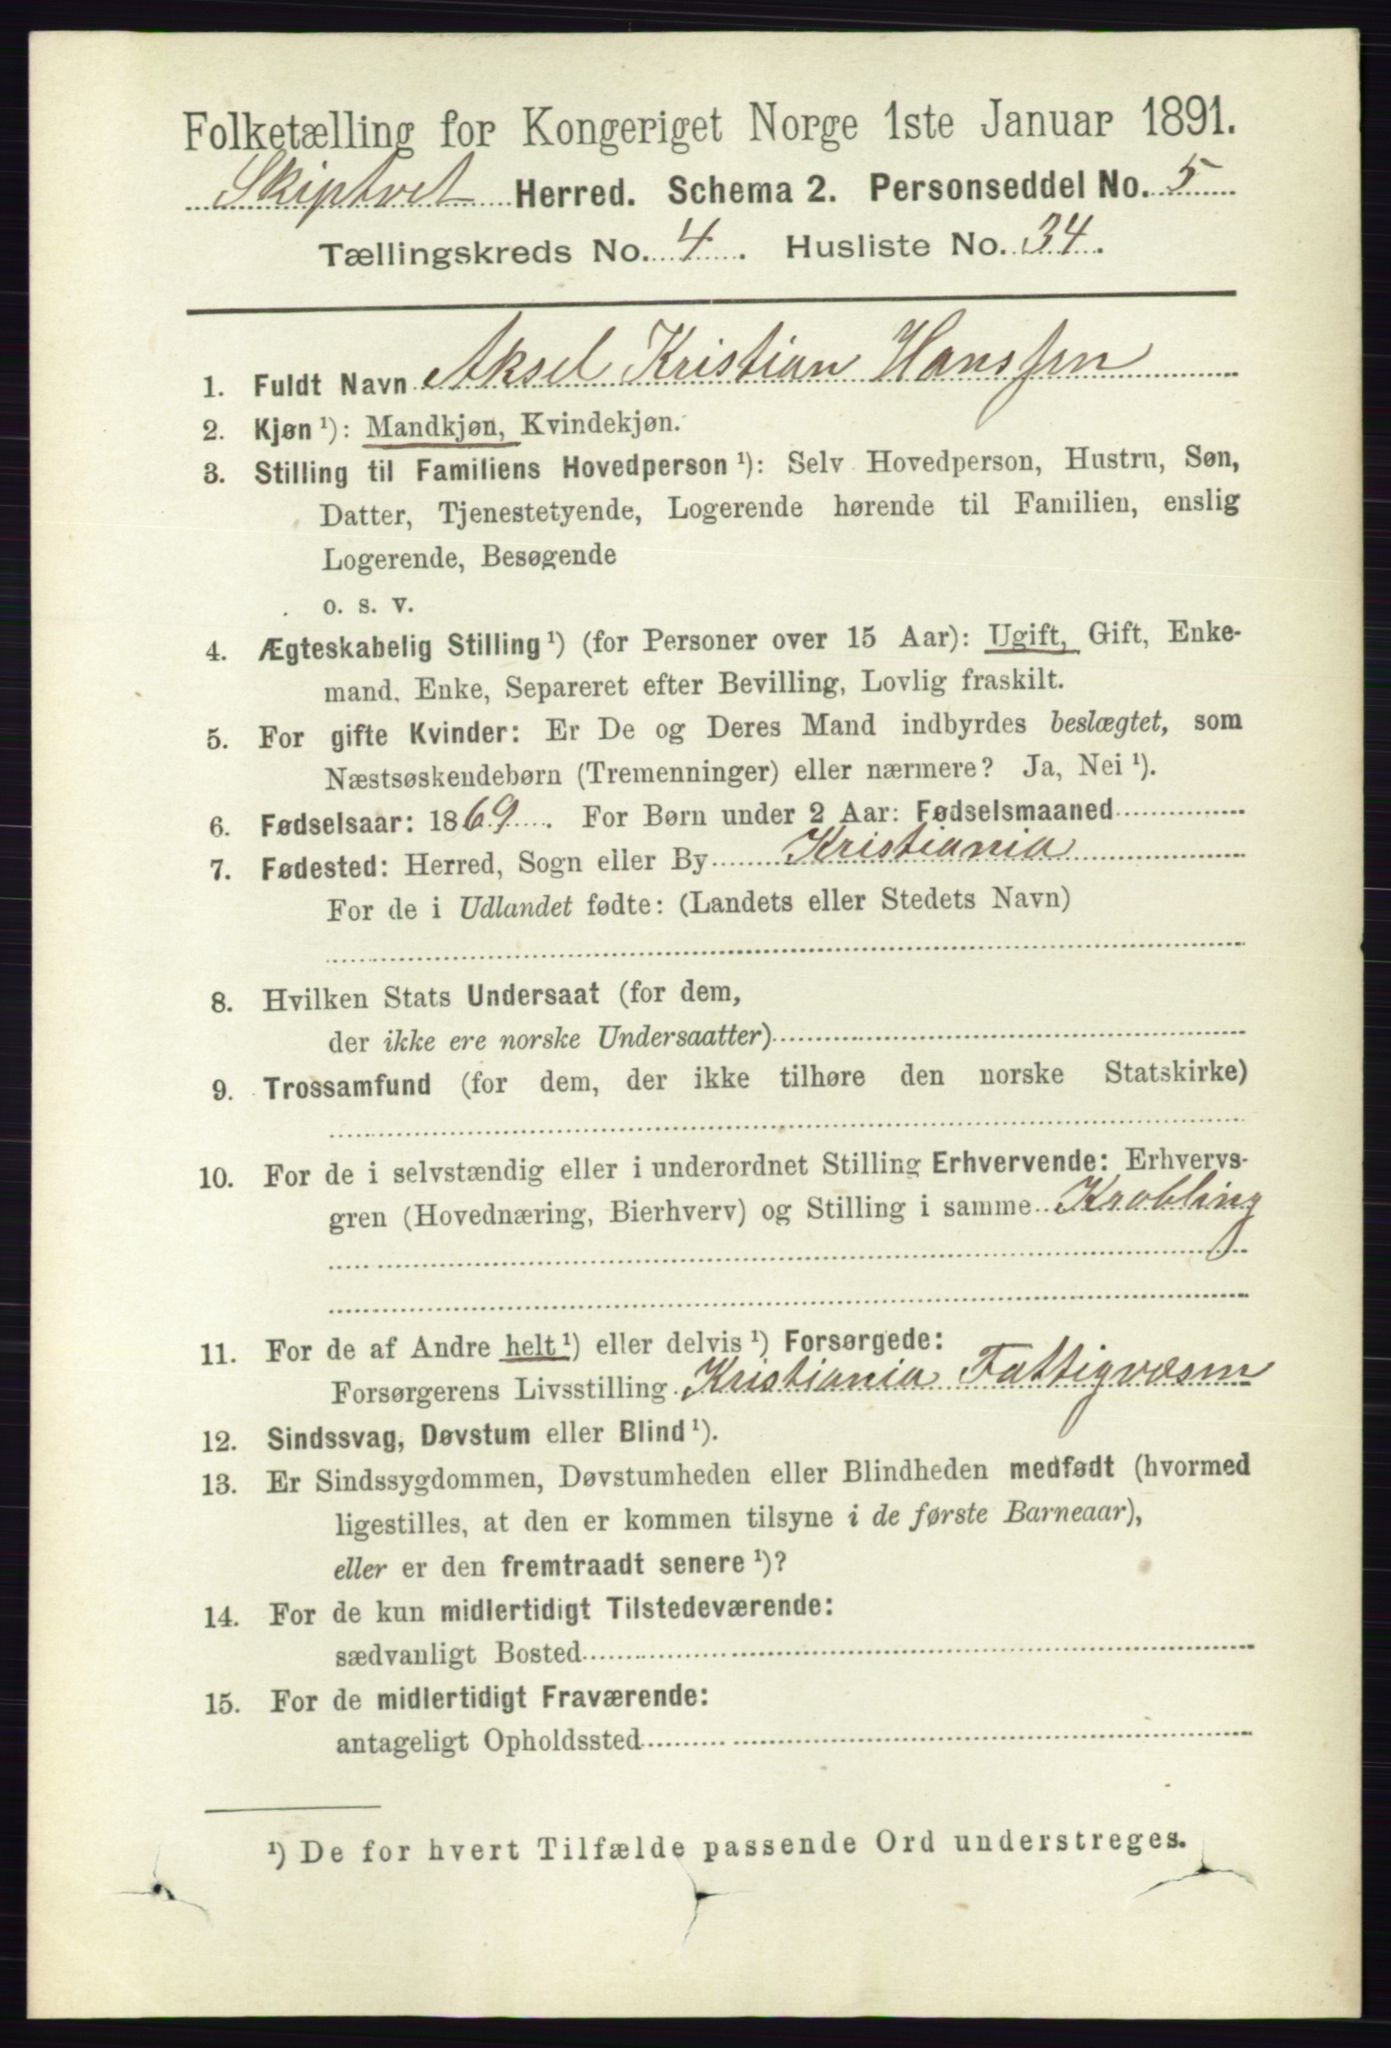 Folketælling for Kongeriget Norge 1ste Januar 1891.
Skiptvet Herred. Schema 2. Personseddel No. 5
Tællingskreds No. 4. Husliste No. 34.
1. Fuldt Navn Aksel Kristian Hanssen
2. Kjøn ¹): Mandkjøn, Kvindekjøn.
3. Stilling til Familiens Hovedperson ¹): Selv Hovedperson, Hustru, Søn,
Datter, Tjenestetyende, Logerende hørende til Familien, enslig
Logerende, Besøgende
o. s. v.
4. Ægteskabelig Stilling ¹) (for Personer over 15 Aar): Ugift, Gift, Enke-
mand, Enke, Separeret efter Bevilling, Lovlig fraskilt.
5. For gifte Kvinder: Er De og Deres Mand indbyrdes beslægtet, som
Næstsøskendebørn (Tremenninger) eller nærmere? Ja, Nei ¹).
6. Fødselsaar: 1869. For Børn under 2 Aar: Fødselsmaaned
7. Fødested: Herred, Sogn eller By Kristiania
For de i Udlandet fødte: (Landets eller Stedets Navn)
8. Hvilken Stats Undersaat (for dem,
der ikke ere norske Undersaatter)
9. Trossamfund (for dem, der ikke tilhøre den norske Statskirke)
10. For de i selvstændig eller i underordnet Stilling Erhvervende: Erhvervs-
gren (Hovednæring, Bierhverv) og Stilling i samme Krobling
11. For de af Andre helt ¹) eller delvis ¹) Forsørgede:
Forsørgerens Livsstilling Kristiania Fattigvæsen
12. Sindssvag, Døvstum eller Blind ¹).
13. Er Sindssygdommen, Døvstumheden eller Blindheden medfødt (hvormed
ligestilles, at den er kommen tilsyne i de første Barneaar),
eller er den fremtraadt senere ¹)?
14. For de kun midlertidigt Tilstedeværende:
sædvanligt Bosted
15. For de midlertidigt Fraværende:
antageligt Opholdssted
¹) De for hvert Tilfælde passende Ord understreges.